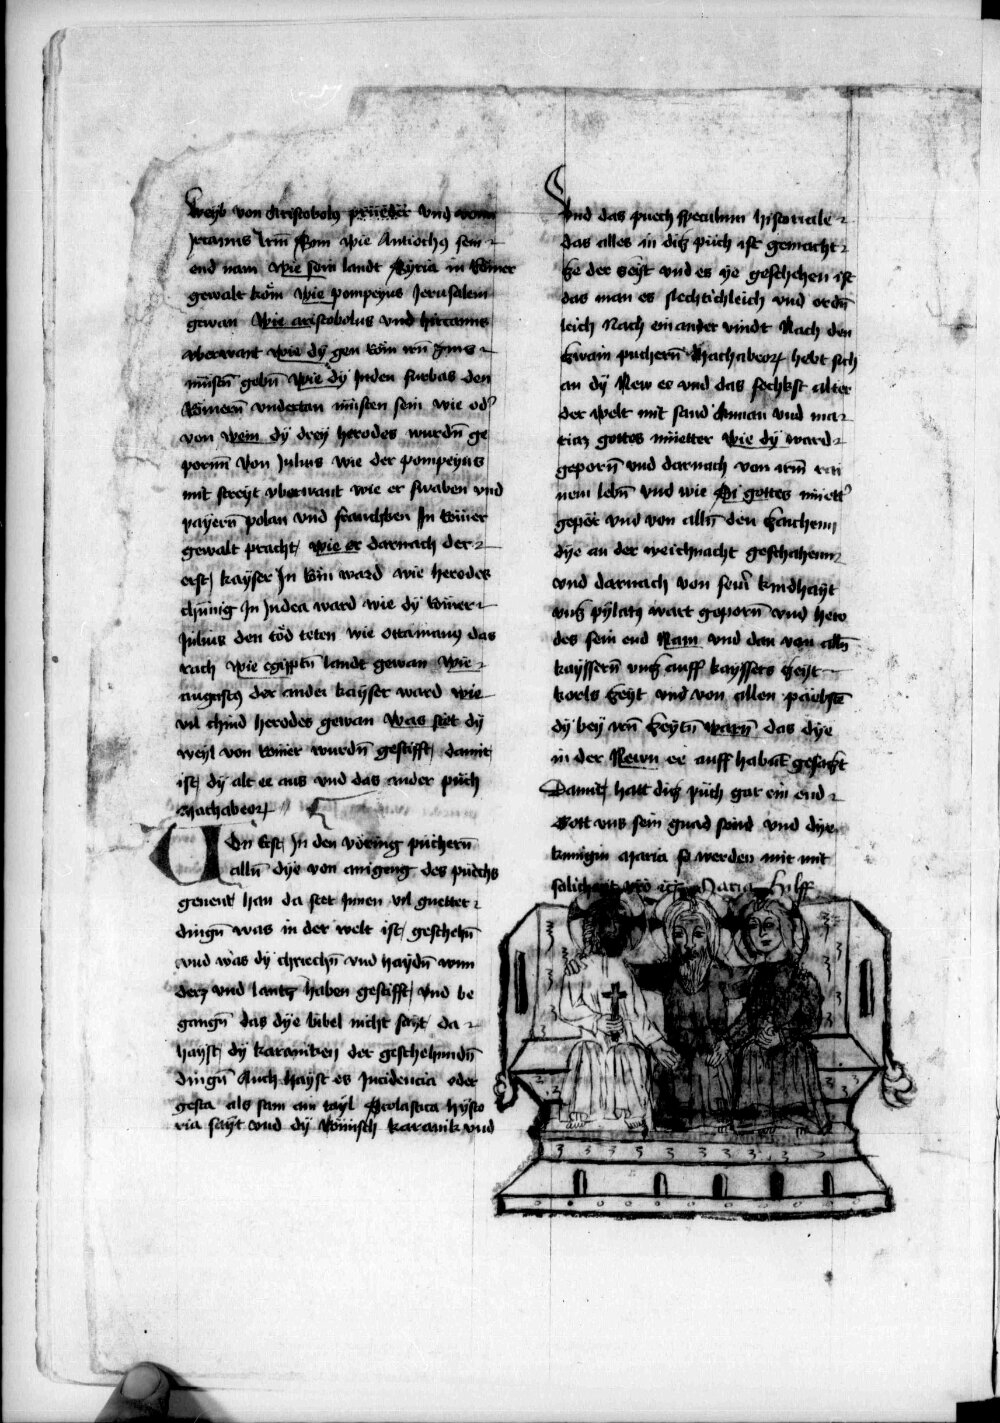 weyb von Aristobolus prueder vnd wann
jrcanus Irm kom wie Antiochus sein
end nam wie sein landt Syria in Römer
gewalt köm wie pompeyus Jerusalem
gewan wie aristobolus vnd hircanus
vberwant wie dy gen Röm irn zins
müstn̄ gebn̄ wie dy Juden furbas den
Römern̄ vndertan müsten sein wie od'
von wem dy drey herodes wurdn̄ ge
pornn̄ von Julius wie der pompeyus
mit streyt vberwant wie er swaben vnd
payern̄ polan vnd franckhen In Römer
gewalt pracht wie er darnach der
erst kayser In Röm ward wie herodes
chünig In Judea ward wie dy Römer
Julius den töd teten wie ottauianus das
rach wie egipptn̄ landt gewan wie
augustus der ander kayser ward wie
vil chind herodes gewan was stet dy
weyl von Römer wurdn̄ gestifft damit
ist dy alt ee aus vnd das ander püch
Machabeorum
Von Erst In den vöring püchern̄
alln̄ dye von anigeng des puechs
genent han da stet Innen vil guetter
dingn̄ was in der welt ist geschehn̄
vnd was dy chriechn̄ vnd haydn̄ wun
derz vnd lantz haben gestifft vnd be
gangn̄ das dye bibel nicht sayt da
hayst dy karaniken der geschehnndn̄
dingn̄ Auch hayst es Incidencia oder
gesta als sam ein tayl Scolastica hysto
ria sayt vnd dy Römisch karanik vnd
Vnd das puech speculum historiale
das alles in ditz püch ist gemacht
ze der zeyt vnd es ye geschehen ist
das man es slechtichleich vnd ordn̄
leich nach ein ander vindt Nach den
zwain puchern̄ Machabeorum hebt sich
an dy New ee vnd das sechst alter
der welt mit sand Annan vnd ma
rian gottes müetter wie dy ward
geporn̄ vnd darnach von irm rai
nem lebn̄ vnd wie Si gottes müett'
gepör vnd von alln̄ den zaichenn
dye an der weichnacht geschahenn
vnd darnach von seim kindhayt
vntz pylatus wart geporn̄ vnd hero
des sein end Nam vnd dan von alln̄
kayssern̄ vntz auff kayssers zeyt
korls zeyt vnd von allen päbstn̄
dy bey irn̄ zeytn̄ warn̄ das dye
in der Newn ee auff habn̄t gesatzt
Damit hatt ditz püch gar ein end
Gott vns sein gnad send vnd dye
künigin Maria so werden wir mit
Maria hilff